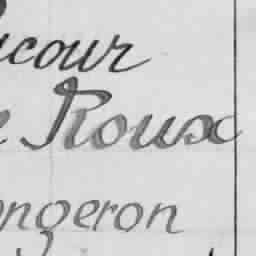 cour
Roux
ngeron